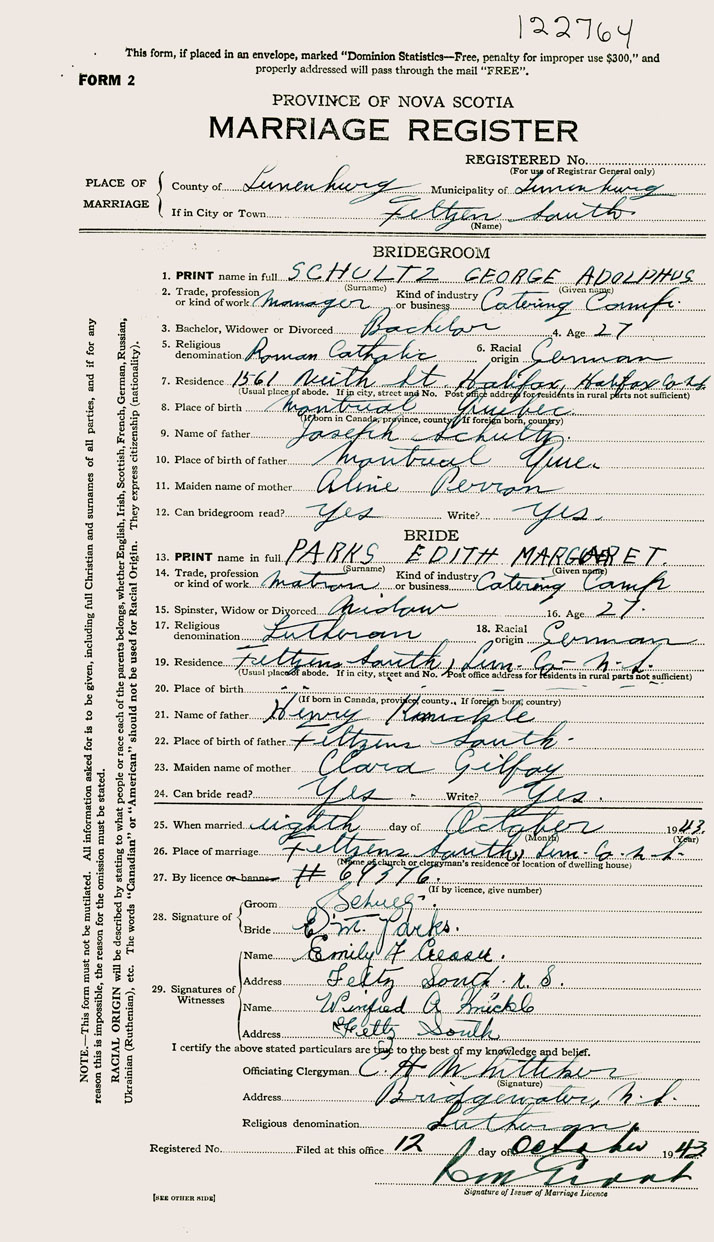 122764
This form, if placed in an envelope, marked "Dominion Statistics—Free, penalty for improper use $300," and
properly addressed will pass through the mail "FREE".
FORM 2
PROVINCE OF NOVA SCOTIA
MARRIAGE REGISTER
REGISTERED No.
(For use of Registrar General only)
PLACE OF MARRIAGE
County of Lunenburg Municipality of Lunenburg
If in City or Town Feltzen South
(Name)
BRIDEGROOM
1. PRINT name in full SCHULTZ GEORGE ADOLPHUS
(Surname) (Given name)
2. Trade, profession or kind of work Manager Kind of industry or business Catering Camp.
3. Bachelor, Widower or Divorced Bachelor 4. Age 27
5. Religious denomination Roman Catholic 6. Racial origin German
7. Residence 1561 St. Halifax, Halifax Co. N.S.
(Usual place of abode. If in city, street and No. Post office address for residents in rural parts not sufficient)
8. Place of birth Montreal Quebec
(If born in Canada, province, county. If foreign born, country)
9. Name of father Joseph Schultz.
10. Place of birth of father Montreal Que.
11. Maiden name of mother Aline Perron
12. Can bridegroom read? Yes Write? Yes.
BRIDE
13. PRINT name in full PARKS EDITH MARGARET.
(Surname) (Given name)
14. Trade, profession or kind of work Matron Kind of industry or business Catering Camp
15. Spinster, Widow or Divorced Widow 16. Age 27.
17. Religious denomination Lutheran 18. Racial origin German
19. Residence Feltzens South, Lun. Co. N.S.
(Usual place of abode. If in city, street and No. Post office address for residents in rural parts not sufficient)
20. Place of birth " " "
(If born in Canada, province, county., If foreign born, country)
21. Name of father Henry Knickle
22. Place of birth of father Feltzens South.
23. Maiden name of mother Clara Gilfoy
24. Can bride read? Yes Write? Yes.
25. When married eighth day of October 1943.
(Month) (Year)
26. Place of marriage Feltzens South, Lun. Co. N.S.
(Name of church or clergyman's residence or location of dwelling house)
27. By licence or banns # 69376.
(If by licence, give number)
28. Signature of
Groom
Bride E. M. Parks.
29. Signatures of Witnesses
Name Emily F Creaser.
Address Feltz South N.S.
Name Winifred A Knickle
Address Feltz South
I certify the above stated particulars are true to the best of my knowledge and belief.
Officiating Clergyman C. H. Whitteker
(Signature)
Address Bridgewater, N.S.
Religious denomination Lutheran.
Registered No. Filed at this office 12 day of October 1943
Signature of Issuer of Marriage Licence
[SEE OTHER SIDE]
NOTE.—This form must not be mutilated. All information asked for is to be given, including full Christian and surnames of all parties, and if for any
reason this is impossible, the reason for the omission must be stated.
RACIAL ORIGIN will be described by stating to what people or race each of the parents belongs, whether English, Irish, Scottish, French, German, Russian,
Ukrainian (Ruthenian), etc. The words "Canadian" or "American" should not be used for Racial Origin. They express citizenship (nationality).